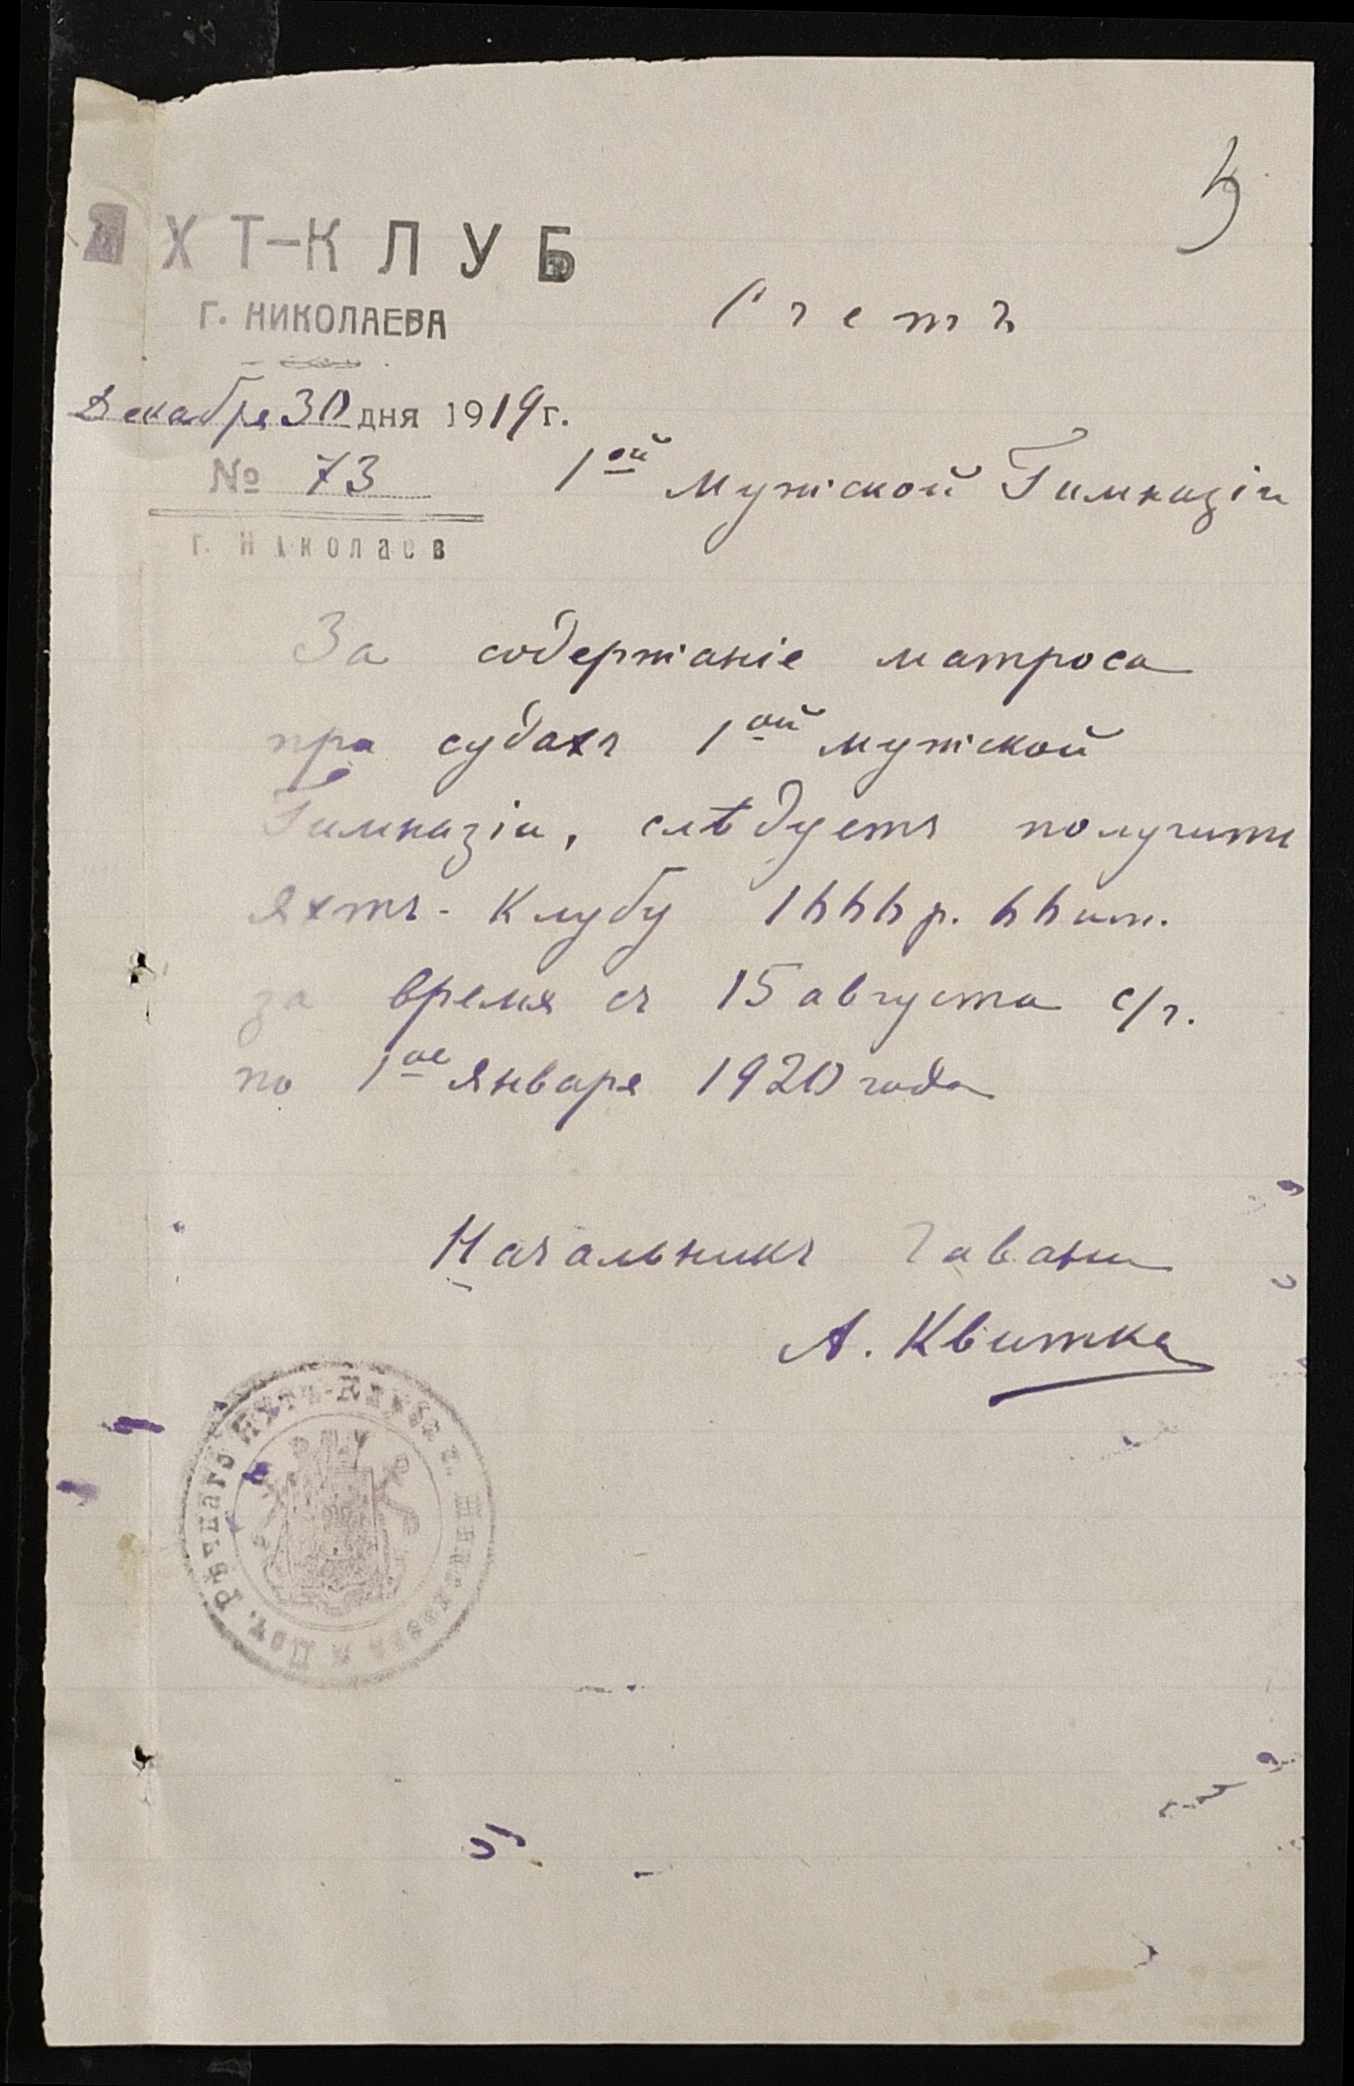 5
ЯХТ-КЛУБ
Г. НИКОЛАЕВА
Счетъ
Декабря 30 дня 1919 г.
№ 73
1ой Мужской Гимназіи
г. Николаев
За содержаніе матроса
при судахъ 1ой мужской
Гимназіи, слѣдуетъ получить
Яхтъ-Клубу 1666 р. 66 коп.
за время съ 15 августа с/г.
по 1ое Января 1920 года
Начальникъ Гавани
А. Квитка
Рѣчнаго Яхтъ-Клуба г. Николаева